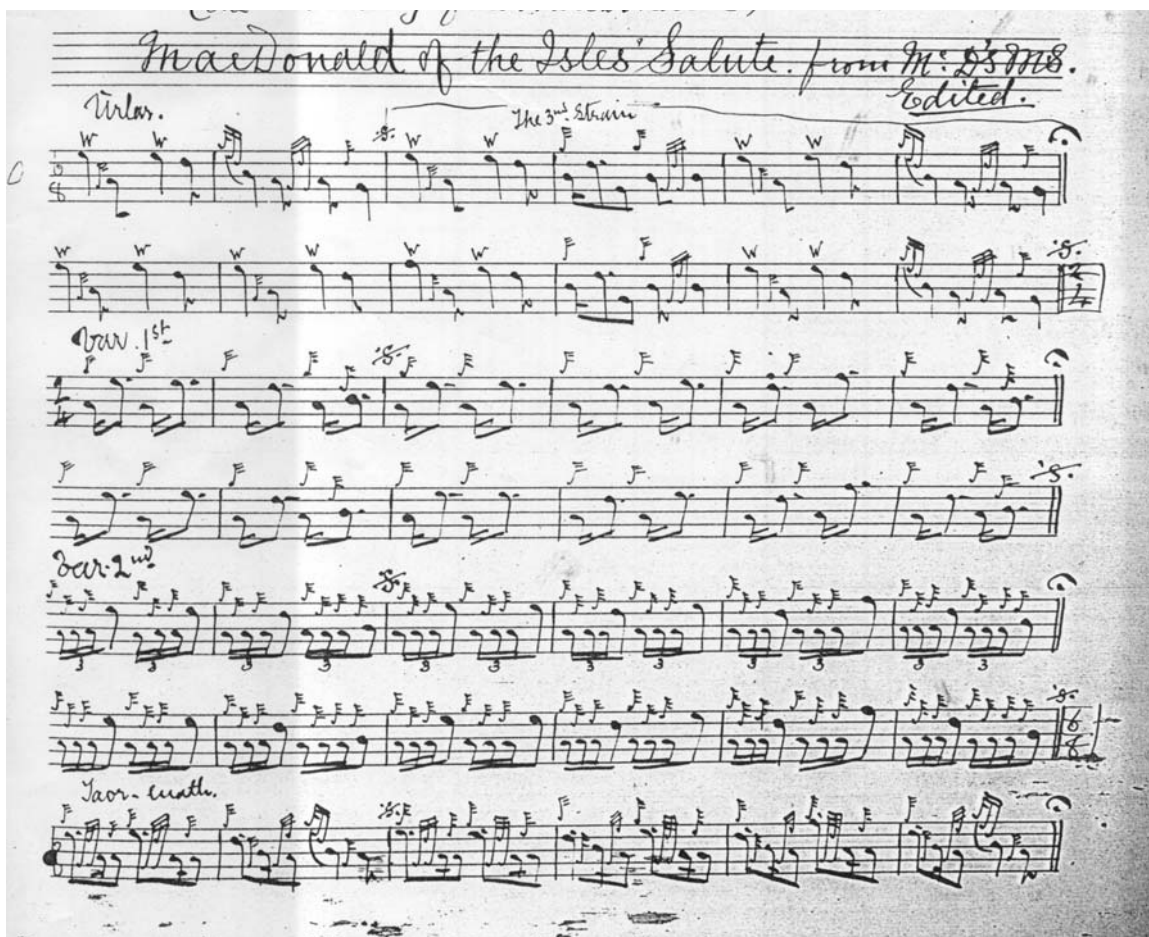 MacDonald of the Isles' Salute. from Mc. D's MS.
Edited.
Ùrlar.
The 3rd Strain
Var. 1st
Var. 2nd
Taor-luath.